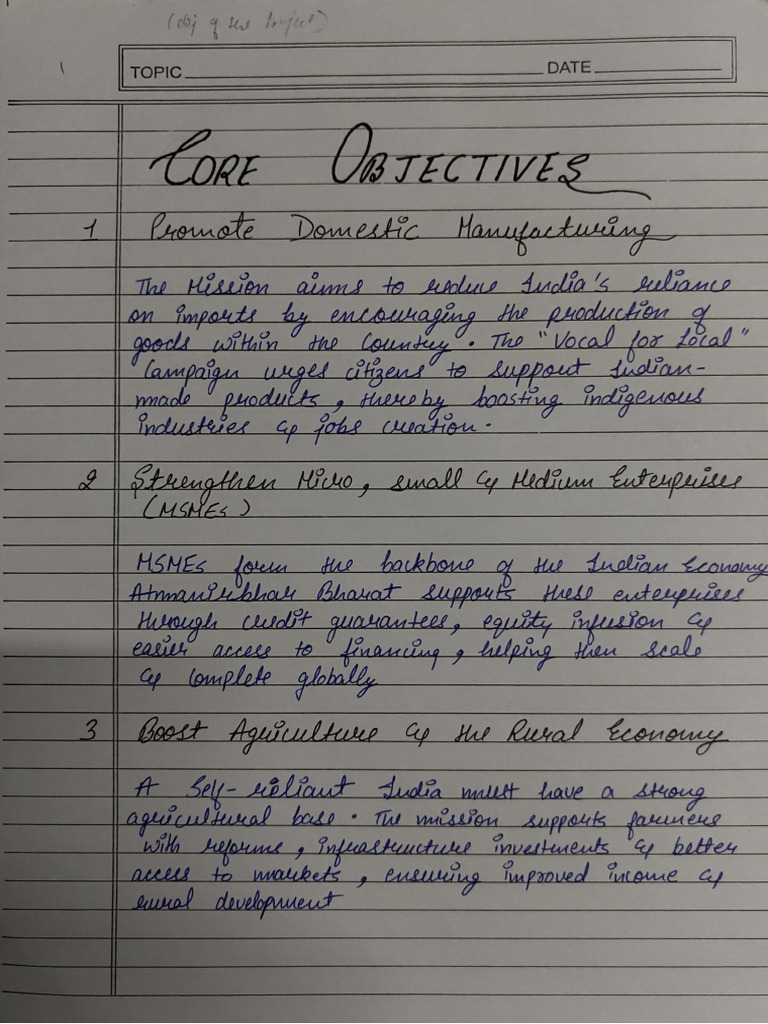 (obj of the Project)
TOPIC DATE
CORE OBJECTIVES
1 Promote Domestic Manufacturing
The Mission aims to reduce India's reliance
on imports by encouraging the production of
goods within the Country. The "Vocal for Local"
Campaign urges citizens to support Indian-
made products, thereby boosting indigenous
industries & jobs creation.
2 Strengthen Micro, small & Medium Enterprises
(MSMEs)
MSMEs form the backbone of the Indian Economy
Atmanirbhar Bharat supports these enterprises
through credit guarantees, equity infusion &
easier access to financing, helping then scale
& complete globally
3 Boost Agriculture & the Rural Economy
A Self-reliant India must have a strong
agricultural base. The mission supports farmers
with reforms, infrastructure investments & better
access to markets, ensuring improved income &
rural development